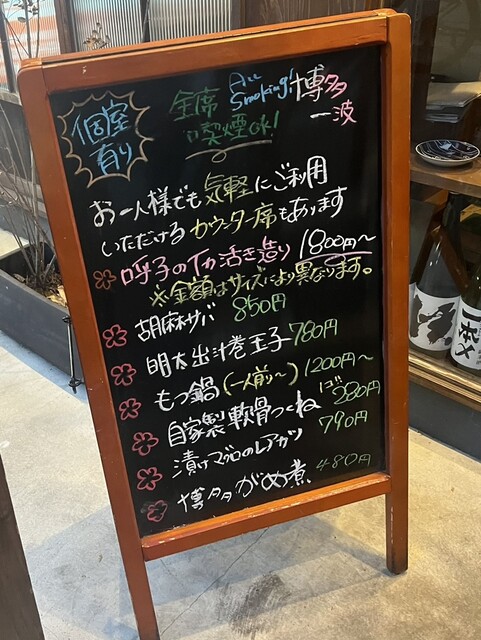 個室
有り
全席
喫煙OK!
All
Smoking!
博多
一波
お一人様でも気軽にご利用
いただけるカウンター席もあります
呼子のイカ活き造り 1800円〜
※金額はサイズにより異なります。
胡麻サバ 850円
明太出汁巻玉子 780円
もつ鍋(一人前〜) 1200円〜
自家製軟骨つくね 1コ 280円
漬けマグロのレアカツ 790円
博多がめ煮 480円
一本〆